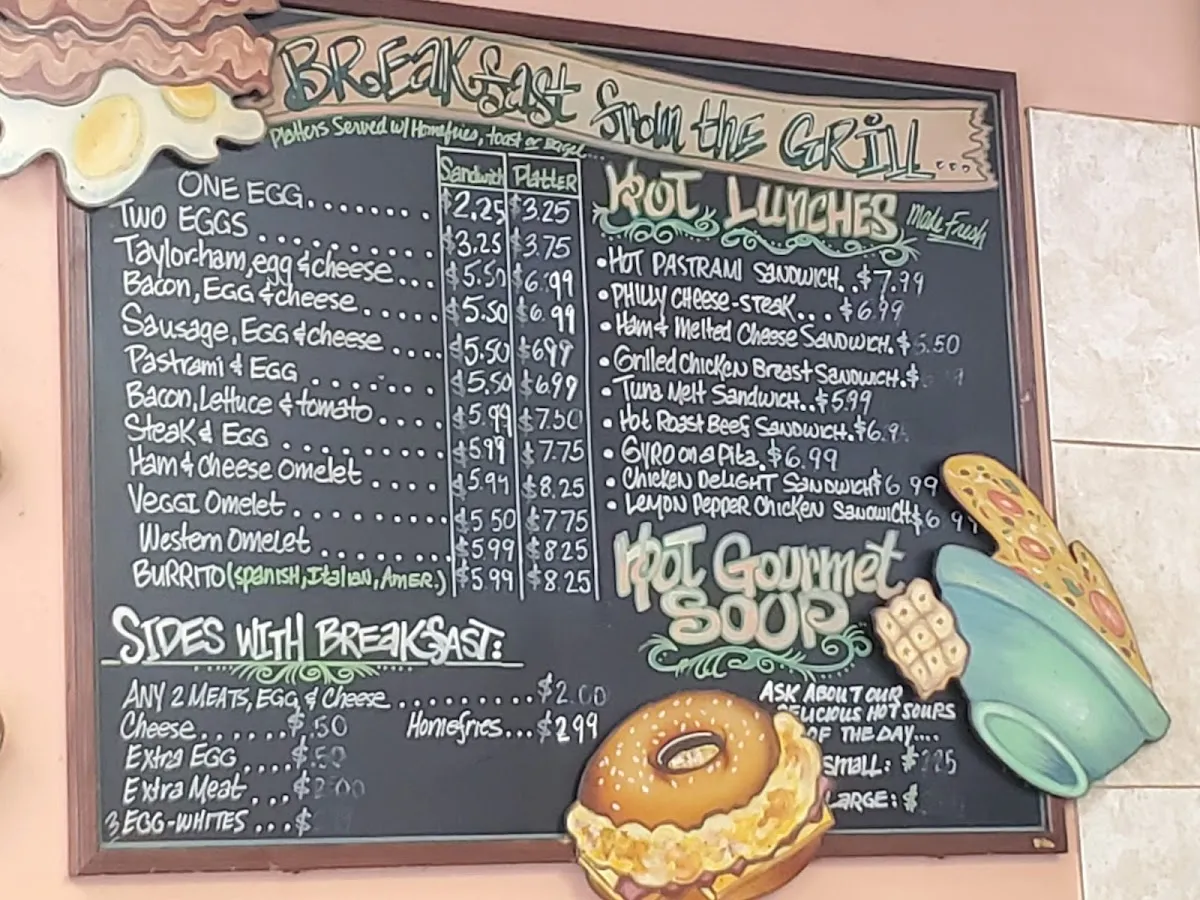 BREAKfast from the GRiLL...
Platters Served w/ Homefries, toast or Bagel...
Sandwich Platter
ONE EGG........ $2.25 $3.25
TWO EGGS.......... $3.25 $3.75
Taylor-ham, egg & cheese... $5.50 $6.99
Bacon, EGG & cheese..... $5.50 $6.99
Sausage, EGG & cheese.... $5.50 $6.99
Pastrami & EGG....... $5.50 $6.99
Bacon, Lettuce & tomato.... $5.99 $7.50
Steak & EGG......... $5.99 $7.75
Ham & Cheese Omelet.... $5.99 $8.25
VeGGI Omelet......... $5.50 $7.75
Western Omelet......... $5.99 $8.25
BURRITO (SpanisH, Italian, AmeR.) $5.99 $8.25
SIDES WITH BREAKFAST:
ANY 2 MEATS, EGG, & Cheese......... $2.00
Cheese...... $.50 Homefries... $2.99
Extra EGG.... $.50
Extra Meat... $2.00
3 EGG-WHITES... $
HOT LUNCHES Made Fresh
•HOT PASTRAMI SANDWICH..$7.99
•PHILLY CHEESE-STEAK... $6.99
•Ham & Melted Cheese SANDWICH.$ .50
•Grilled Chicken Breast SANDWICH.$
•Tuna Melt Sandwich..$5.99
•Hot Roast Beef SANDWICH.$6.9
•GYRO on a Pita.$6.99
•CHICKEN DELIGHT SANDWICH $6.99
•LEMON PEPPER CHICKEN SANDWICH $6.99
HOT Gourmet
SOUP
ASK ABOUT OUR
DELICIOUS HOT SOUPS
OF THE DAY....
SMALL: $ 25
LARGE: $